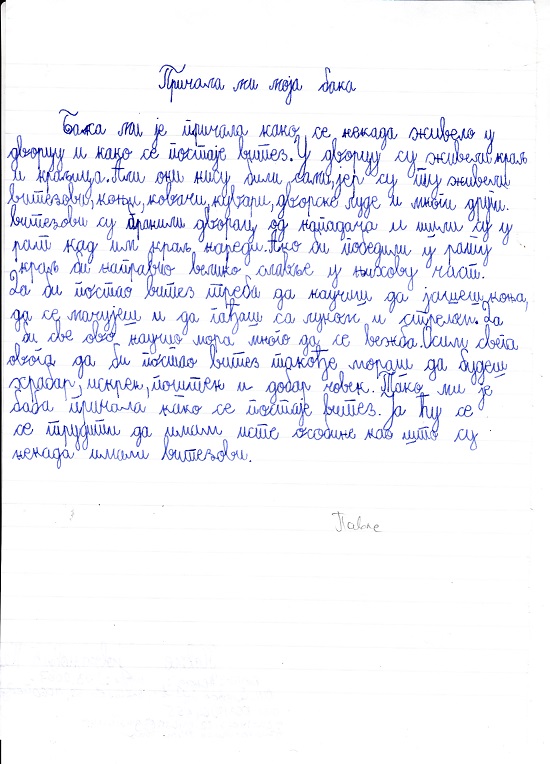 Причала ми моја бака
Бака ми је причала како се некада живело у
дворцу и како се постаје витез. У дворцу су живели краљ
и краљица. Али они нису били сами, јер су ту живели
витезови, коњи, ковачи, кувари, дворске луде и многи други.
Витезови су бранили дворац од нападача и ишли су у
рат кад им краљ нареди. Ако би победили у рату
краљ би направио велико славље у њихову част.
Да би постао витез треба да научиш да јашеш коња,
да се мачујеш и да гађаш са луком и стрелом. Да
би све ово научио мора много да се вежба. Осим свега
овога да би постао витез такође мораш да будеш
храбар, искрен, поштен и добар човек. Тако ми је
баба причала како се постаје витез. Ја ћу се
се трудити да имам исте особине као што су
некада имали витезови.
Павле